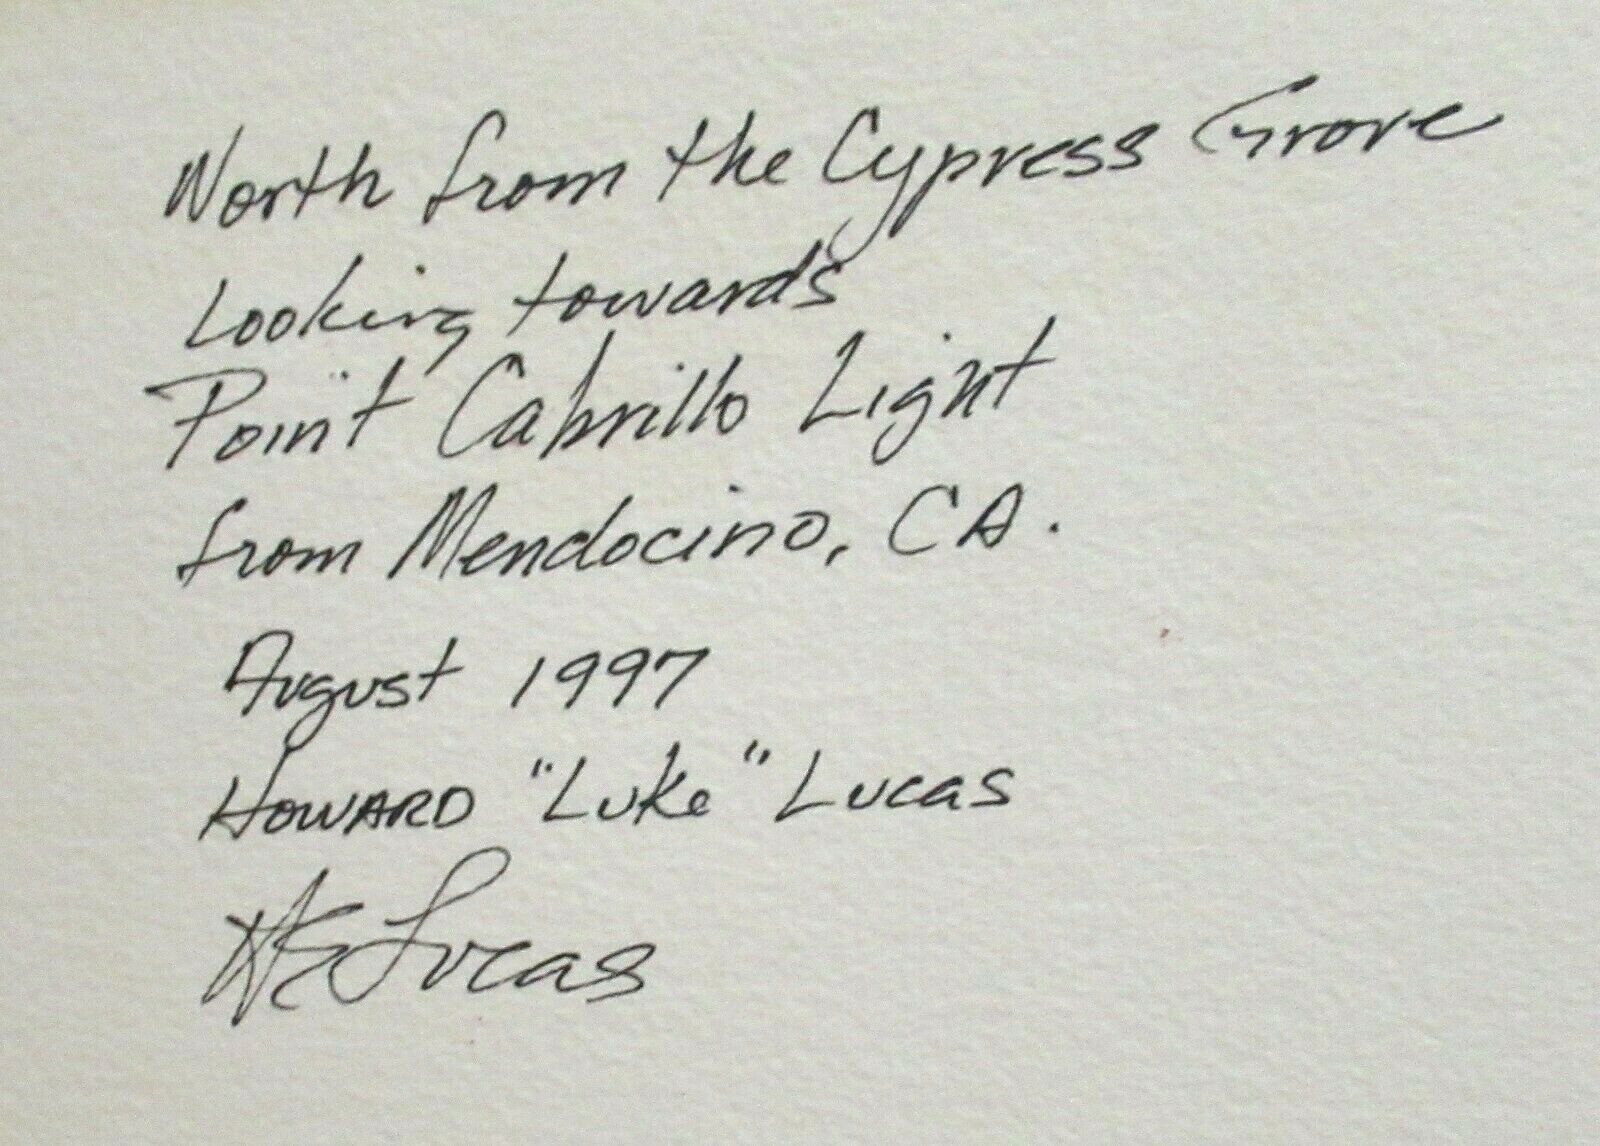 North from the Cypress Grove
Looking towards
Point Cabrillo Light
from Mendocino, CA.
August 1997
HOWARD "Luke" Lucas
Lucas